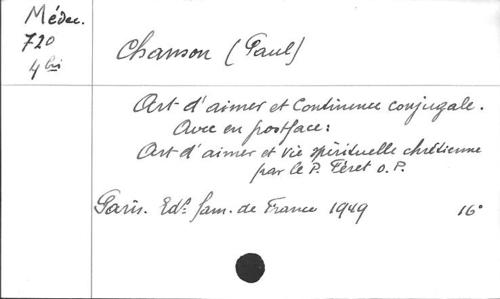 Médec.
720
4 bis
Chanson (Paul)
Art d'aimer et Continence conjugale.
Avec en postface:
Art d'aimer et vie spirituelle chrétienne
par le P. Féret O.P.
Paris. Edᵗ. fam. de France 1949 16°